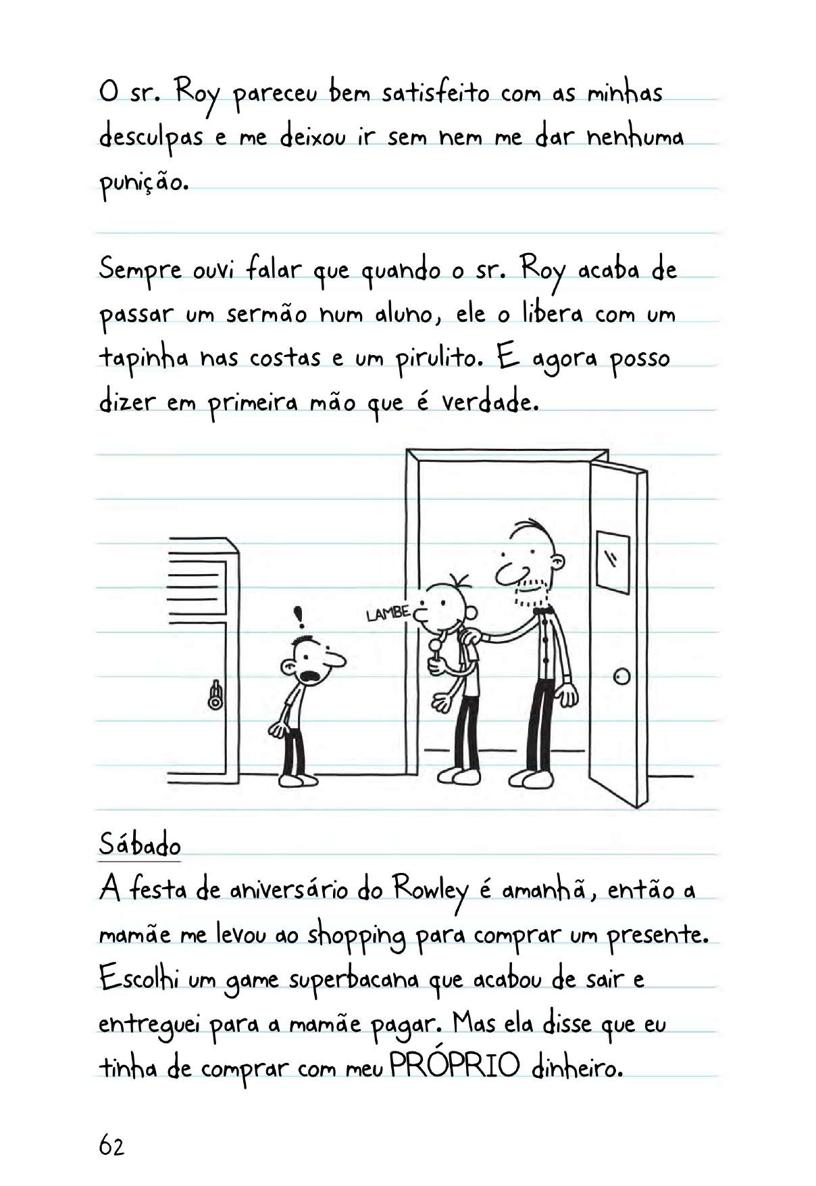 O sr. Roy pareceu bem satisfeito com as minhas
desculpas e me deixou ir sem nem me dar nenhuma
punição.
Sempre ouvi falar que quando o sr. Roy acaba de
passar um sermão num aluno, ele o libera com um
tapinha nas costas e um pirulito. E agora posso
dizer em primeira mão que é verdade.
!
LAMBE
Sábado
A festa de aniversário do Rowley é amanhã, então a
mamãe me levou ao shopping para comprar um presente.
Escolhi um game superbacana que acabou de sair e
entreguei para a mamãe pagar. Mas ela disse que eu
tinha de comprar com meu PRÓPRIO dinheiro.
62